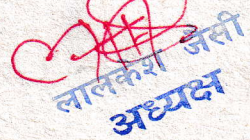 लालकेश जैसी
अध्यक्ष